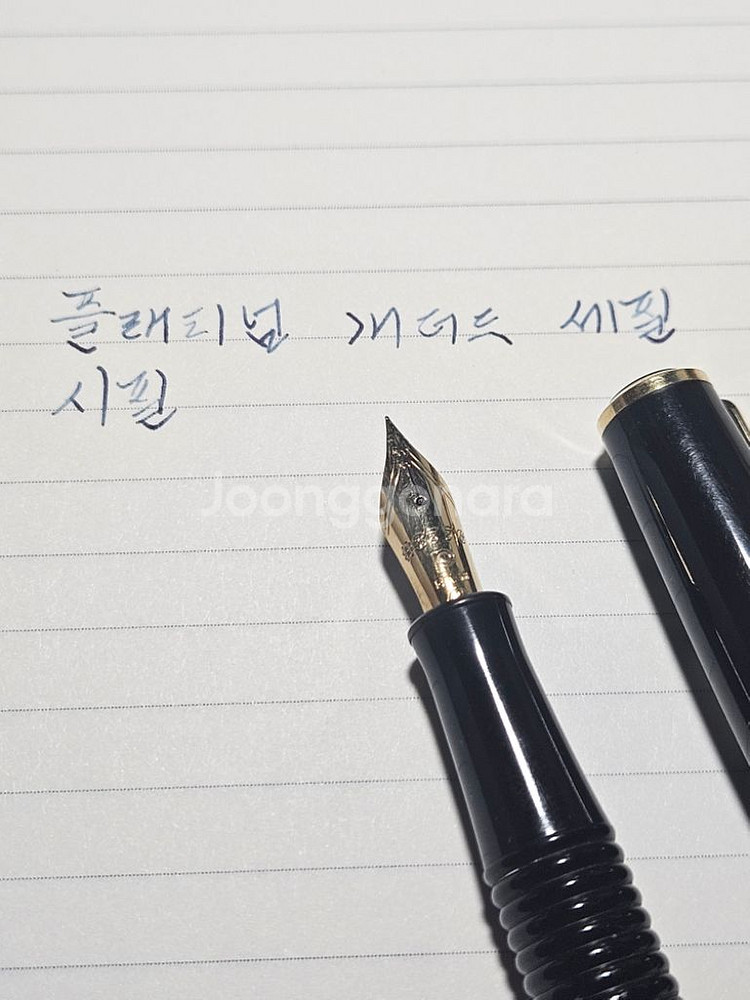 플래티넘 개더드 세필
시필
Joonggonara